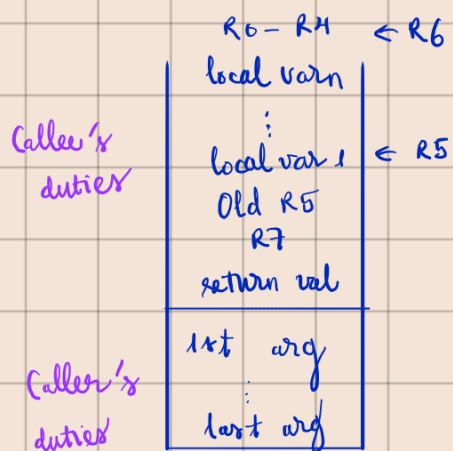 R0 - R4 ← R6
local varn
⋮
Callee's
duties
local var 1 ← R5
Old R5
R7
return val
1st arg
⋮
Caller's
duties
last arg